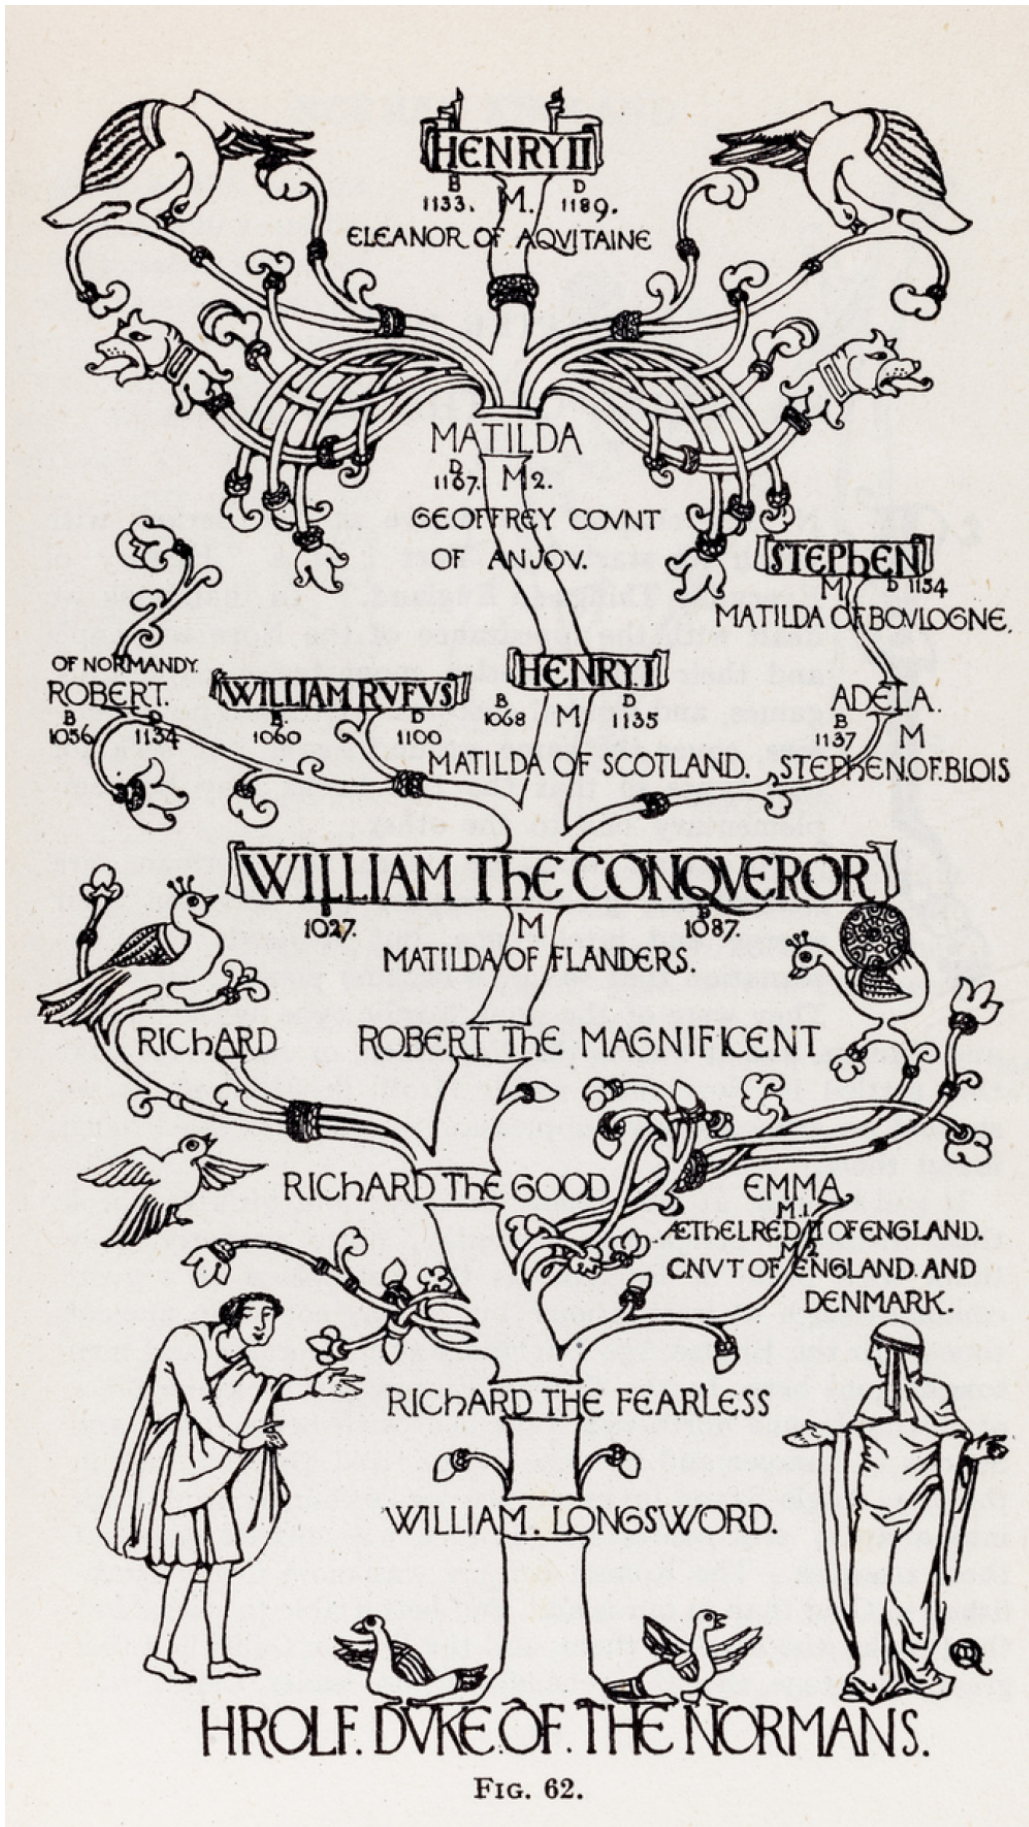 HENRY II
B D
1133. M. 1189.
ELEANOR OF AQVITAINE
MATILDA
D
1167. M2.
GEOFFREY COVNT
OF ANJOV.
STEPhEN
M D 1154
MATILDA OF BOVLOGNE.
OF NORMANDY.
ROBERT.
B D
1056 1134
WILLIAM RVFVS
B. D
1060 1100
HENRY I
B D
1068 M. 1135
MATILDA OF SCOTLAND.
ADELA.
B
1137 M
STEPhEN.OF.BLOIS
WILLIAM ThE CONQVEROR
B D
1027. M 1087.
MATILDA OF FLANDERS.
RIChARD
ROBERT ThE MAGNIFICENT
RIChARD ThE GOOD
EMMA
M.1
ÆThELRED II OF ENGLAND.
M 2
CNVT OF ENGLAND AND
DENMARK.
RIChARD THE FEARLESS
WILLIAM. LONGSWORD.
HROLF. DVKE.OF.THE NORMANS.
FIG. 62.